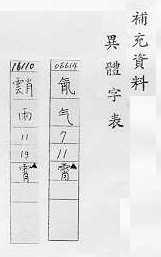 補充資料
異體字表
06614
气
7
11
霄▲
雨
11
19
霄▲